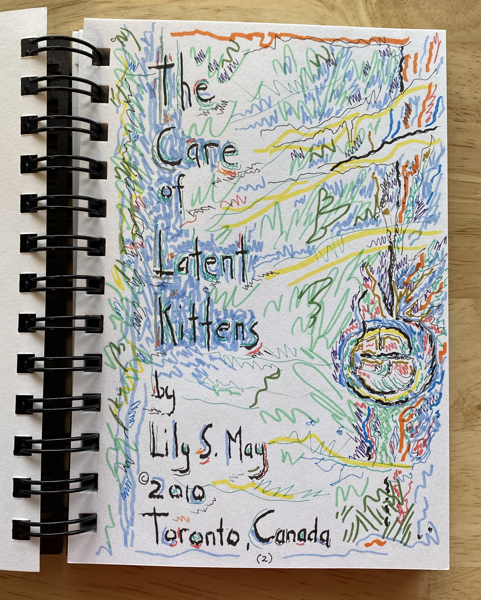 The
Care
of
Latent
Kittens
by
Lily S. May
©2010
Toronto, Canada
(2)